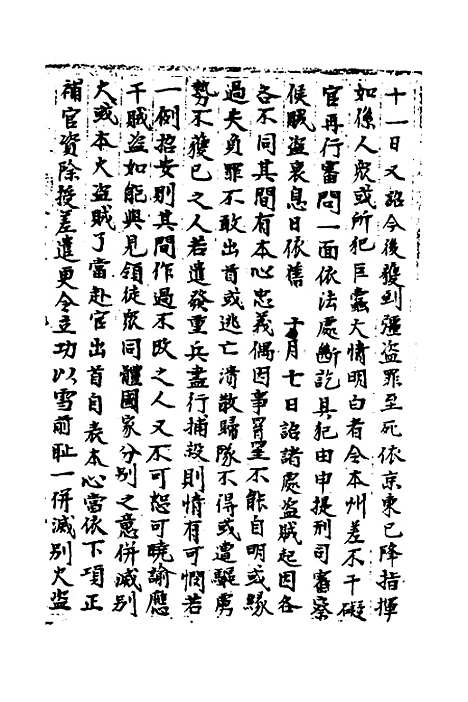 十一日又詔今後獲到彊盜罪至死依京東已降指揮
如係人衆或所犯巨蠹大情明白者令本州差不干礙
官再行審問一面依法處斷訖具犯由申提刑司審察
候賊盜衰息日依舊　十月七日詔諸處盜賊起因各
各不同其間有本心忠義偶因事罥罣不能自明或緣
過失負罪不敢出首或逃亡潰散歸隊不得或遭驅虜
勢不獲已之人若遣發重兵盡行捕殺則情有可憫若
一例招安則其間作過不改之人又不可恕可曉諭應
干賊盜如能與見領徒衆同體國家分別之意併滅別
火或本火盜賊了當赴官出首自表本心當依下項正
補官資除授差遣更令立功以雪前恥一併滅別火盜